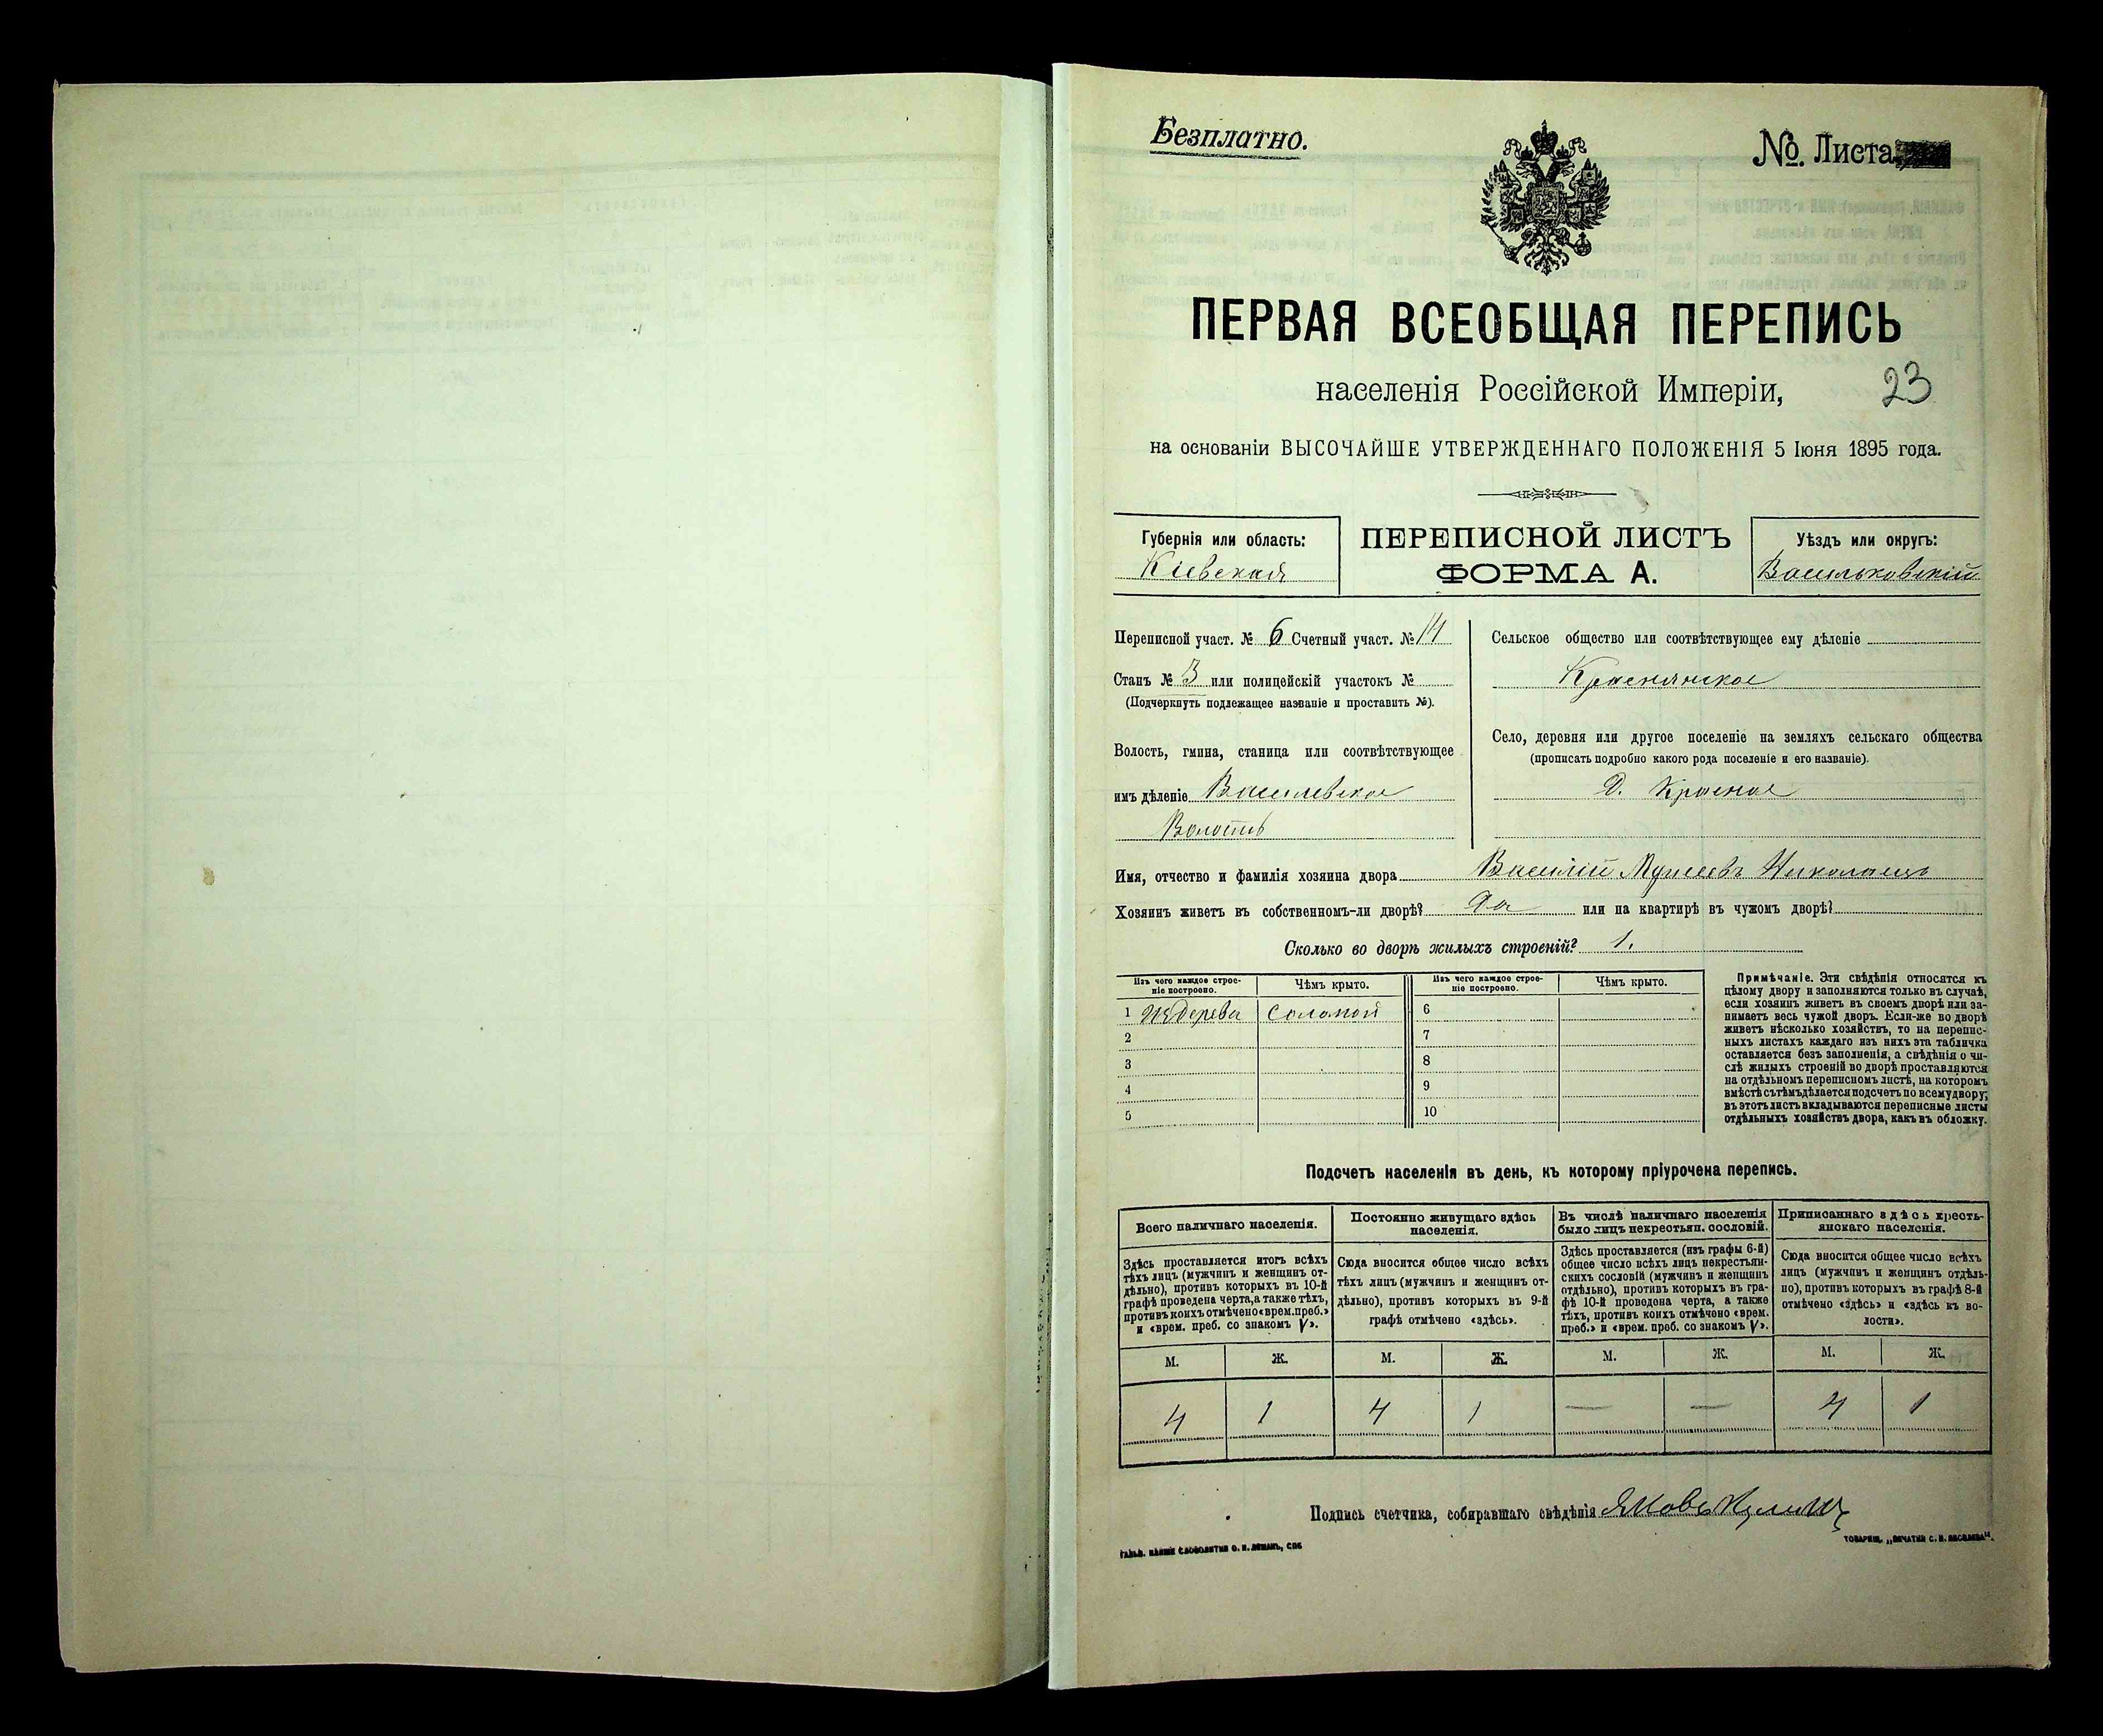 Безплатно.
№. Листа
ПЕРВАЯ ВСЕОБЩАЯ ПЕРЕПИСЬ
населенія Россійской Имперіи,
23
на основаніи ВЫСОЧАЙШЕ УТВЕРЖДЕННАГО ПОЛОЖЕНІЯ 5 Іюня 1895 года.
Губернія или область:
Кіевская
ПЕРЕПИСНОЙ ЛИСТЪ
ФОРМА А.
Уѣздъ или округъ:
Васильковскій
Переписной участ. № 6 Счетный участ. № 14
Станъ № 3 или полицейскій участокъ №
(Подчеркнуть подлежащее названіе и проставить №).
Волость, гмина, станица или соотвѣтствующее
имъ дѣленіе Василевское
Волость
Сельское общество или соотвѣтствующее ему дѣленіе
Краснянское
Село, деревня или другое поселеніе на земляхъ сельскаго общества
(прописать подробно какого рода поселеніе и его названіе).
Д. Красное
Имя, отчество и фамилія хозяина двора Василій
Хозяинъ живетъ въ собственномъ-ли дворѣ? Да или на квартирѣ въ чужомъ дворѣ?
Сколько во дворѣ жилыхъ строеній? 1.
Изъ чего каждое строе-
ніе построено.
Чѣмъ крыто.
Изъ чего каждое строе-
ніе построено.
Чѣмъ крыто.
1 Изъ дерева Соломой 6
2 7
3 8
4 9
5 10
Примѣчаніе. Эти свѣдѣнія относятся къ
цѣлому двору и заполняются только въ случаѣ,
если хозяинъ живетъ въ своемъ дворѣ или за-
нимаетъ весь чужой дворъ. Если-же во дворѣ
живетъ нѣсколько хозяйствъ, то на перепис-
ныхъ листахъ каждаго изъ нихъ эта табличка
оставляется безъ заполненія, а свѣдѣнія о чи-
слѣ жилыхъ строеній во дворѣ проставляются
на отдѣльномъ переписномъ листѣ, на которомъ
вмѣстѣ съ тѣмъ дѣлается подсчетъ по всему двору;
въ этотъ листъ вкладываются переписные листы
отдѣльныхъ хозяйствъ двора, какъ въ обложку.
Подсчетъ населенія въ день, къ которому пріурочена перепись.
Всего наличнаго населенія.
Здѣсь проставляется итогъ всѣхъ
тѣхъ лицъ (мужчинъ и женщинъ от-
дѣльно), противъ которыхъ въ 10-й
графѣ проведена черта, а также тѣхъ,
противъ коихъ отмѣчено «врем. преб.»
и «врем. преб. со знакомъ V».
Постоянно живущаго здѣсь
населенія.
Сюда вносится общее число всѣхъ
тѣхъ лицъ (мужчинъ и женщинъ от-
дѣльно), противъ которыхъ въ 9-й
графѣ отмѣчено «здѣсь».
Въ числѣ наличнаго населенія
было лицъ некрестьян. сословій.
Здѣсь проставляется (изъ графы 6-й)
общее число всѣхъ лицъ некрестьян-
скихъ сословій (мужчинъ и женщинъ
отдѣльно), противъ которыхъ въ гра-
фѣ 10-й проведена черта, а также
тѣхъ, противъ коихъ отмѣчено «врем.
преб.» и «врем. преб. со знакомъ V».
Приписаннаго здѣсь кресть-
янскаго населенія.
Сюда вносится общее число всѣхъ
лицъ (мужчинъ и женщинъ отдѣль-
но), противъ которыхъ въ графѣ 8-й
отмѣчено «здѣсь» и «здѣсь къ во-
лости».
М. Ж. М. Ж. М. Ж. М. Ж.
4 1 4 1 — — 4 1
Подпись счетчика, собиравшаго свѣдѣнія Яковъ